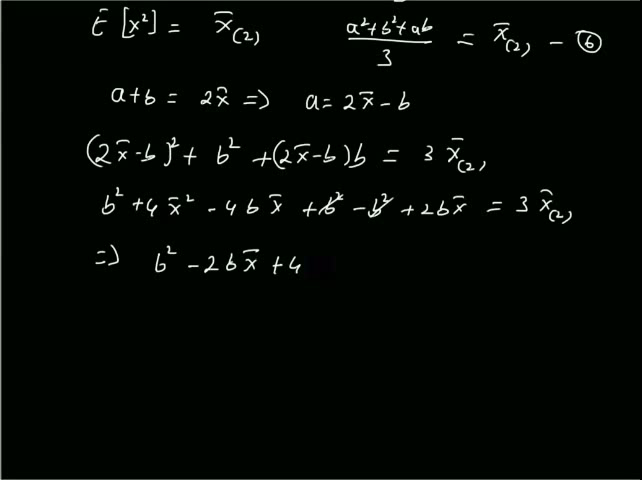 E [x²] = x̄₍₂₎   (a²+b²+ab)/3 = x̄₍₂₎ - ⑥
a+b = 2x̄ => a = 2x̄ - b
(2x̄-b)² + b² + (2x̄-b)b = 3 x̄₍₂₎
b² + 4x̄² - 4bx̄ + b² - b² + 2bx̄ = 3 x̄₍₂₎
=> b² - 2bx̄ + 4